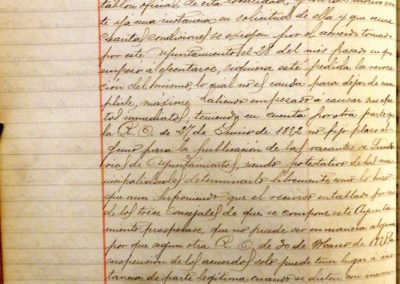 tablon oficial de esta localidad, y
te ya una instancia en solicitud de ella y que reune
cuantas condiciones se exigen por el acuerdo tomado
por este Ayuntamiento el 28 del mes pasado en que
empezó á ejecutarse, siquiera esté pedida la revoca
cion del mismo, lo qual no es causa para dejar de cum
plirle, máxime habiendo empezado a causar sus efec
tos inmediatos, teniendo en cuenta por otra parte que
la R. O. de 27 de Junio de 1872 no fijo plazo al
guno para la publicación de las vacantes de Secreta
rias de Ayuntamientos, siendo potestativo de las mu
nicipalidades determinarlo libremente como lo hizo
que aun suponiendo que el recurso entablado por
de los trece Concejales de que se compone este Ayunta
miento prosperase, que no puede ser en manera alguna
por que segun otra R. O. de 30 de de
suspension de los acuerdos solo puede tener lugar á ins
tancia de parte legítima cuando se dicten con